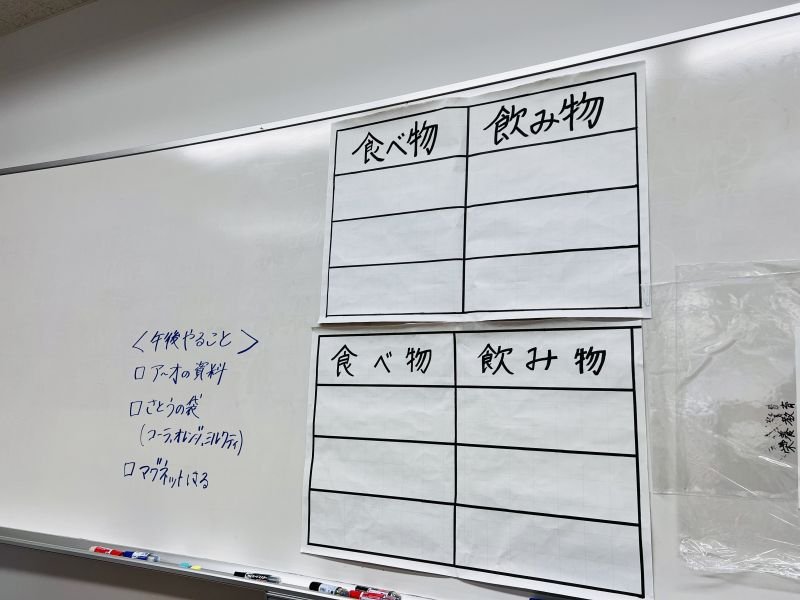 食べ物 飲み物
食べ物 飲み物
〈午後やること〉
□ ア〜オの資料
□ さとうの袋
(コーラ、オレンジ、ミルクティ)
□ マグネットはる
栄養教育